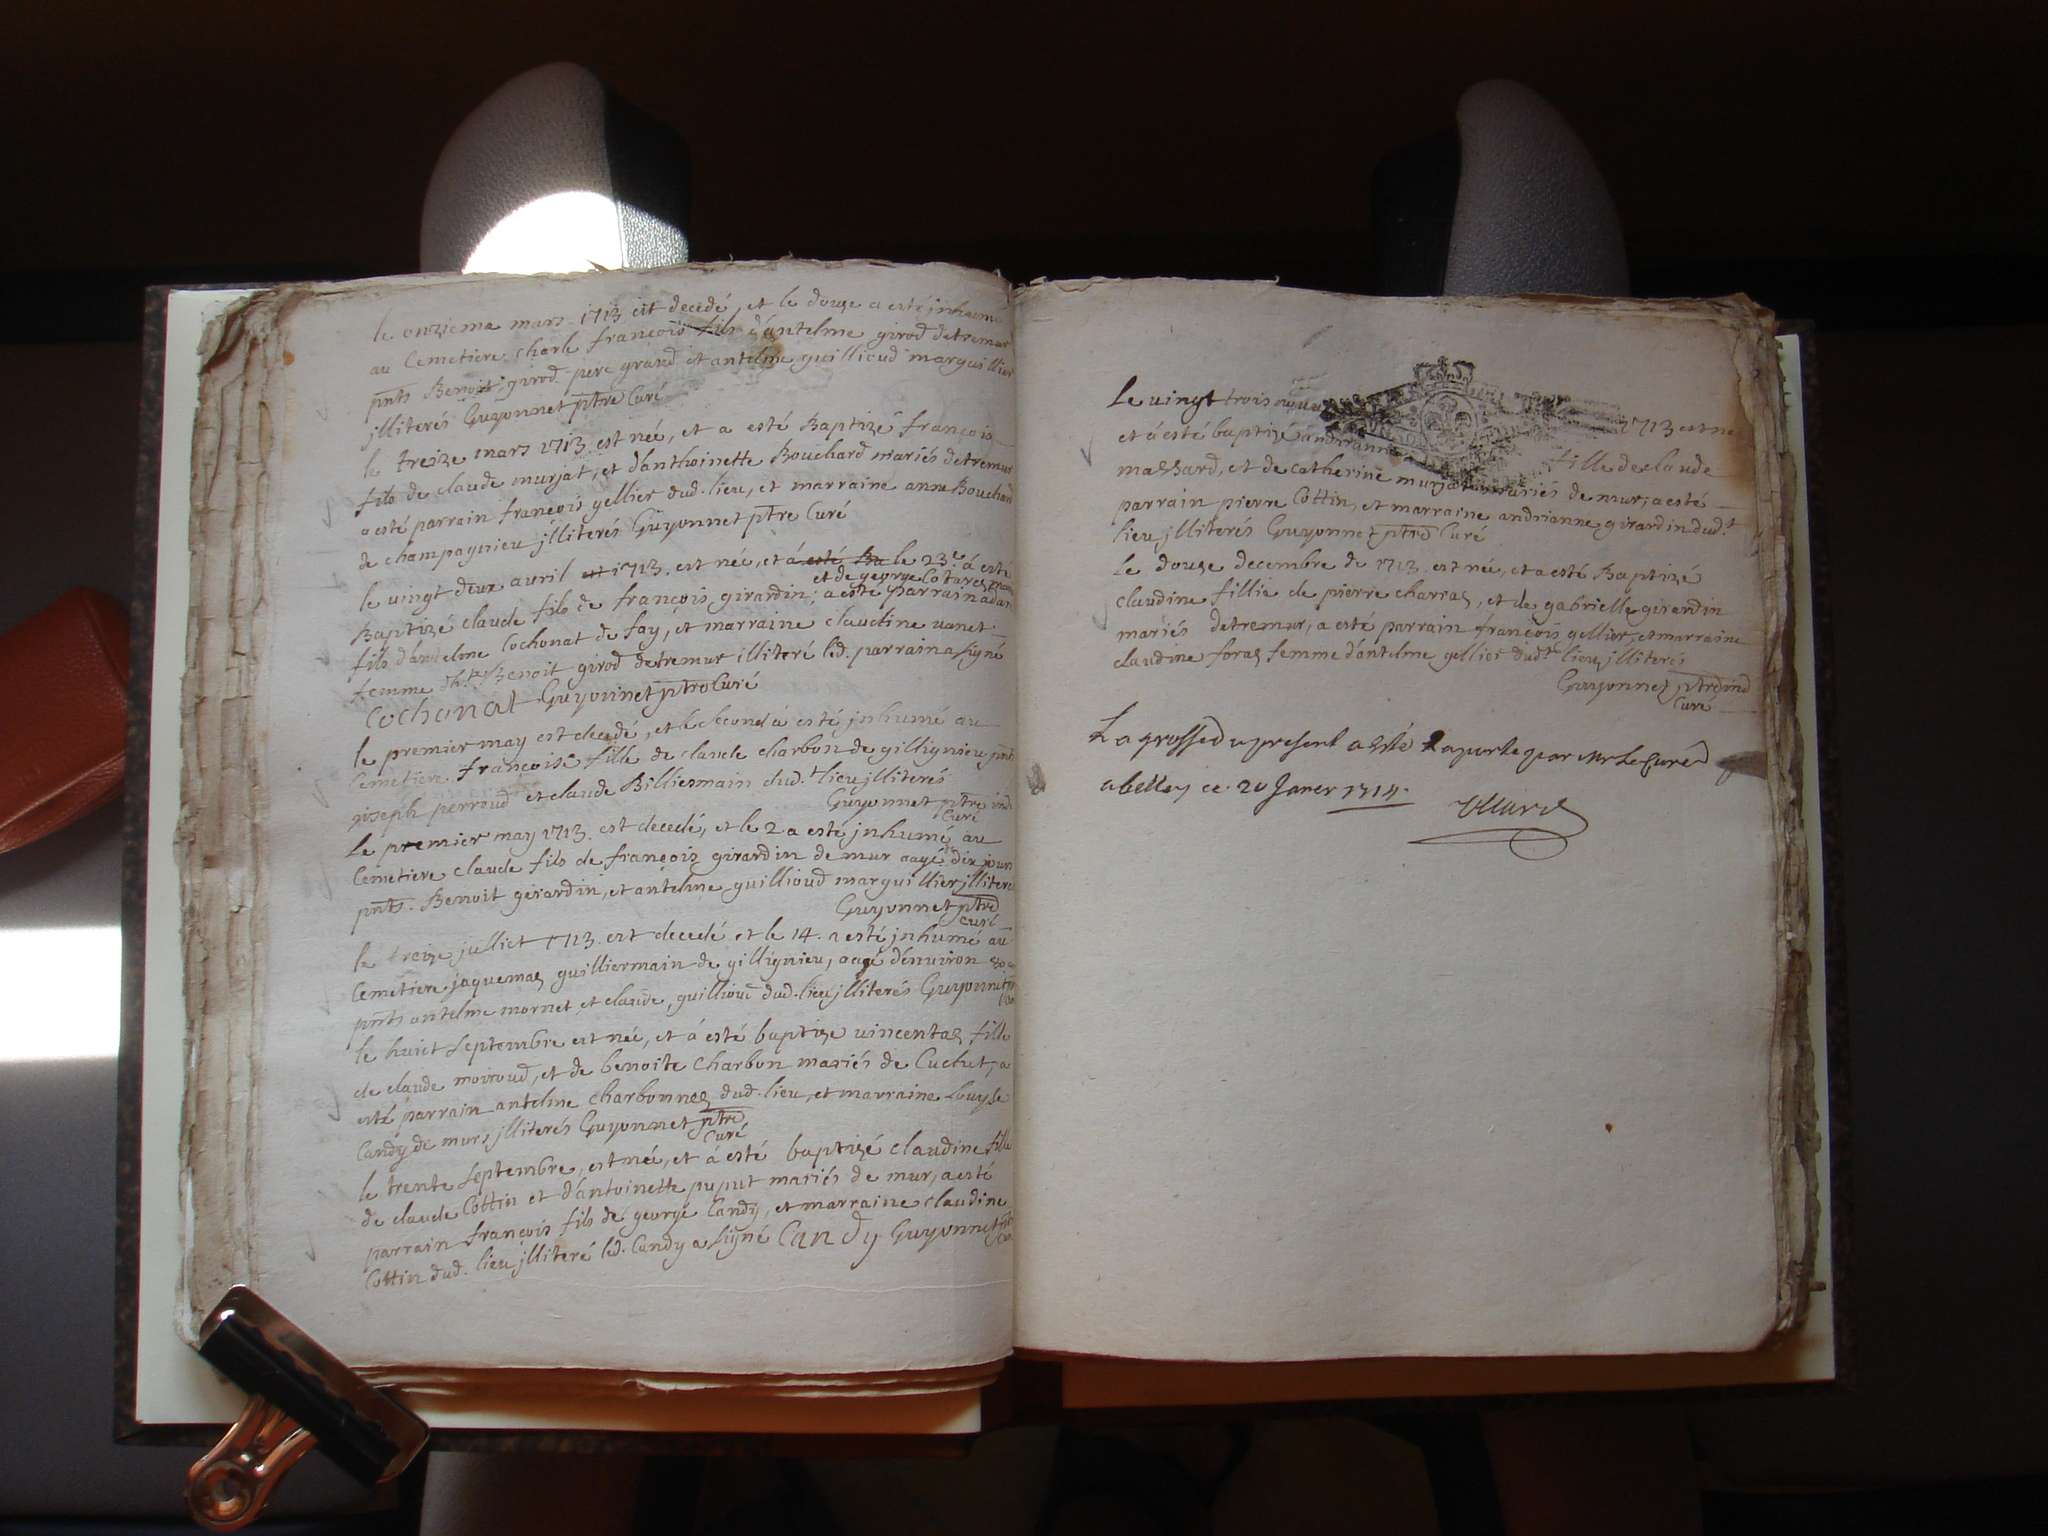 le onzieme mars 1713 est decedé, et le douze a esté jnhumé
au Cemetiere charle françois fils d'antelme girod detremur
pnts Benoit girod pere grand et antelme guillioud marguillier
jlliterés Guyonnet ptre Curé
le treize mars 1713. est née, et a esté Baptizé françois
fils de claude murjat, et d'anthoinette Bouchard mariés detremur
a esté parrain françois gellier dud. lieu, et marraine anne Bouchard
de champagnieu jlliterés Guyonnet ptre Curé
le vingt deux avril 1713. est née, et á esté Ba le 23e. á esté
et de george Cotarel
Baptizé claude fils de françois girardin; a esté parrain
fils d'antelme Cochonat de fay, et marraine claudine vanet
femme Benoit girod detremur illiteré led. parrain a signé
Cochonat Guyonnet ptre Curé
le premier may est decedé, et le second á esté jnhumé au
Cemetiere françoise fille de claude charbon de gillignieu pnts
joseph perroud et claude Billiermain dud. lieu jlliterés
Guyonnet ptre ind
Curé
le premier may 1713. est decedé, et le 2 a esté jnhumé au
Cemetiere claude fils de françois girardin de mur aagé de dix jours
pnts. Benoit gerardin, et antelme guillioud marguillier jlliteré
Guyonnet ptre
Curé
le treize julliet 1713. est decedé et le 14. a esté jnhumé au
Cemetiere jaquemaz guilliermain de gillignieu, aagé d'environ
pnts antelme mornet et claude guillioud dud. lieu jlliterés Guyonnet
le huict septembre est née, et á esté baptize vincentaz fille
de claude moiroud, et de benoite Charbon mariés de Cuchet, a
esté parrain antelme charbonnez dud. lieu, et marraine Louyse
Candy de murs jlliterés Guyonnet ptre
Curé
le trente septembre, est née, et á esté baptizé claudine fille
de claude Cottin et d'antoinette puput mariés de mur, a esté
parrain françois fils de george Candy, et marraine claudine
Cottin dud. lieu jlliteré led. Candy a signé Candy Guyonnet
Le vingt trois 1713 est née
et á esté baptizé andrianne fille de claude
mazzard, et de catherine murjat mariés de mur, a esté
parrain pierre Cottin, et marraine andrianne girardin dud.t
lieu jlliterés Guyonnet ptre Curé
Le douze decembre de 1713. est née, et a esté Baptizé
claudine fillie de pierre charraz, et de gabrielle girardin
mariés detremur, a esté parrain françois gellier, et marraine
claudine foraz femme d'antelme gellier dud.t lieu jlliterés
Guyonnet ptre ind
Curé
La grosse du present a esté Raportée par Mr Le Curé
a belley ce 20 Janer 1714.